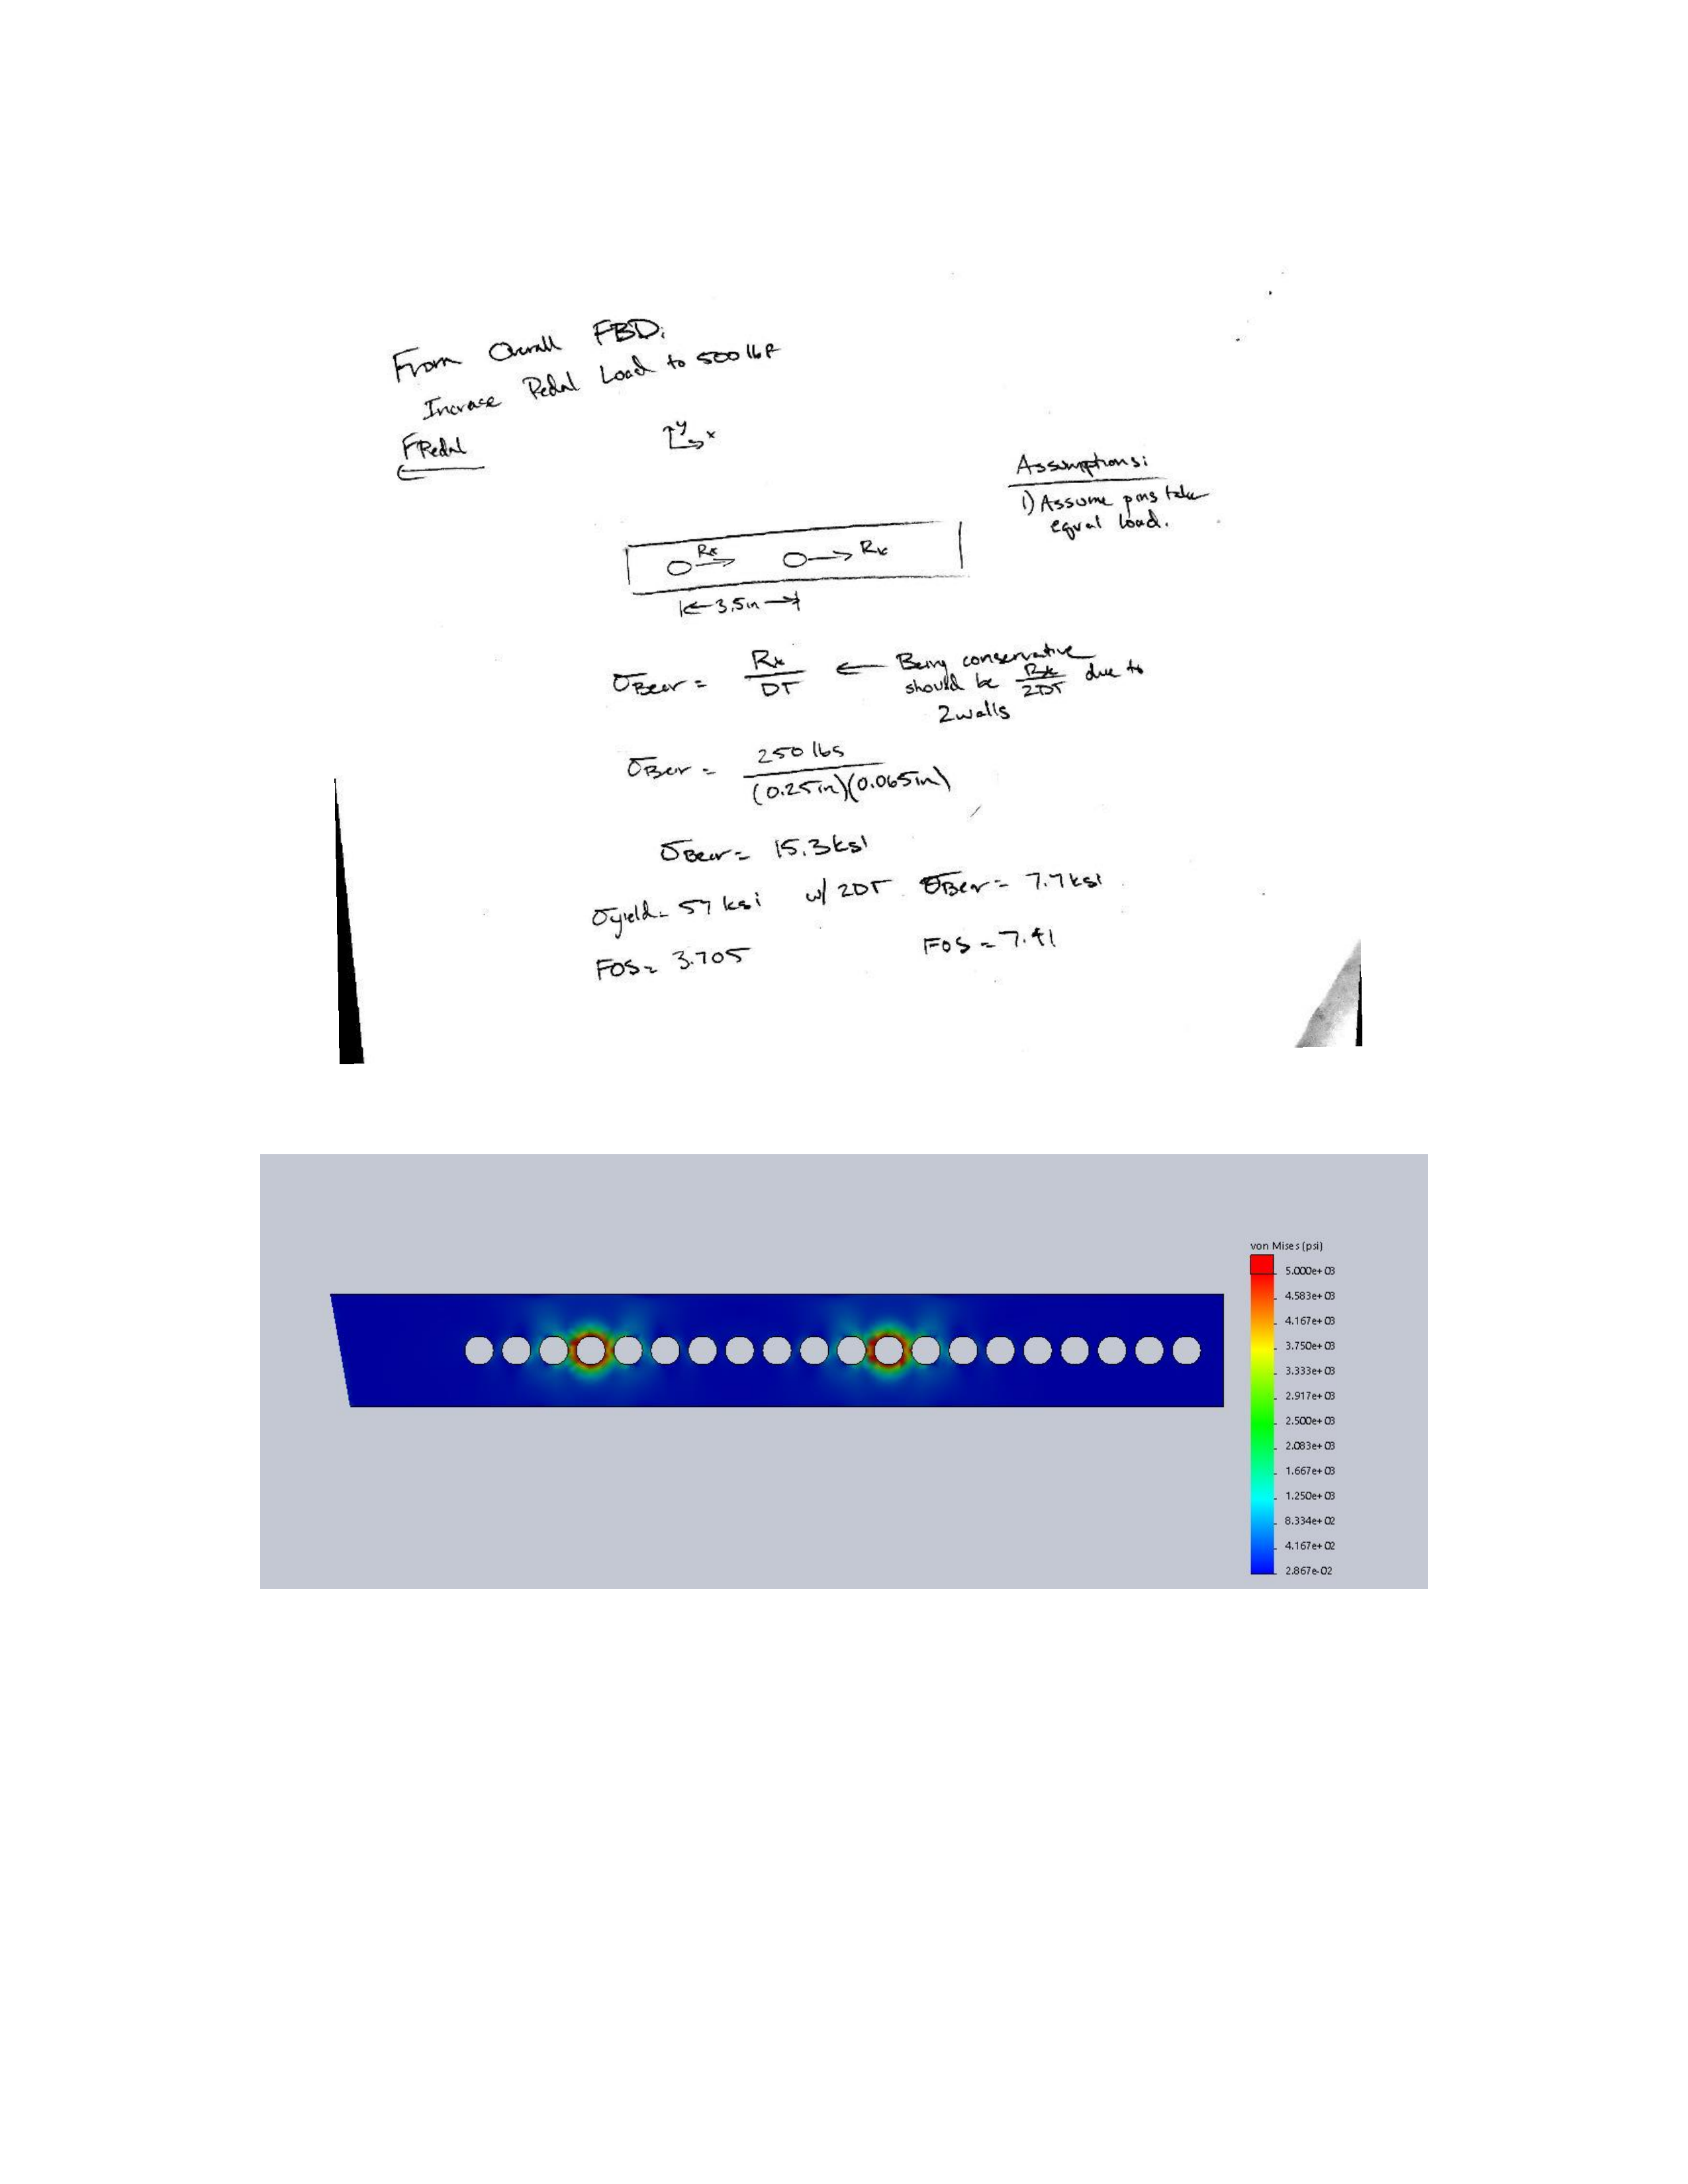 From Overall FBD:
Increase Pedal Load to 500 lbf
FPedal
y
x
Assumptions:
1) Assume pins take
equal load.
Rx
Rx
3.5in
σBear = Rx / DT ← Being conservative
should be Rx / 2DT due to
2 walls
σBear = 250 lbs / (0.25in)(0.065in)
σBear = 15.3ksi
σyield = 57 ksi w/ 2DT σBear = 7.7ksi
FOS = 3.705 FOS = 7.41
von Mises (psi)
5.000e+03
4.583e+03
4.167e+03
3.750e+03
3.333e+03
2.917e+03
2.500e+03
2.083e+03
1.667e+03
1.250e+03
8.334e+02
4.167e+02
2.867e-02